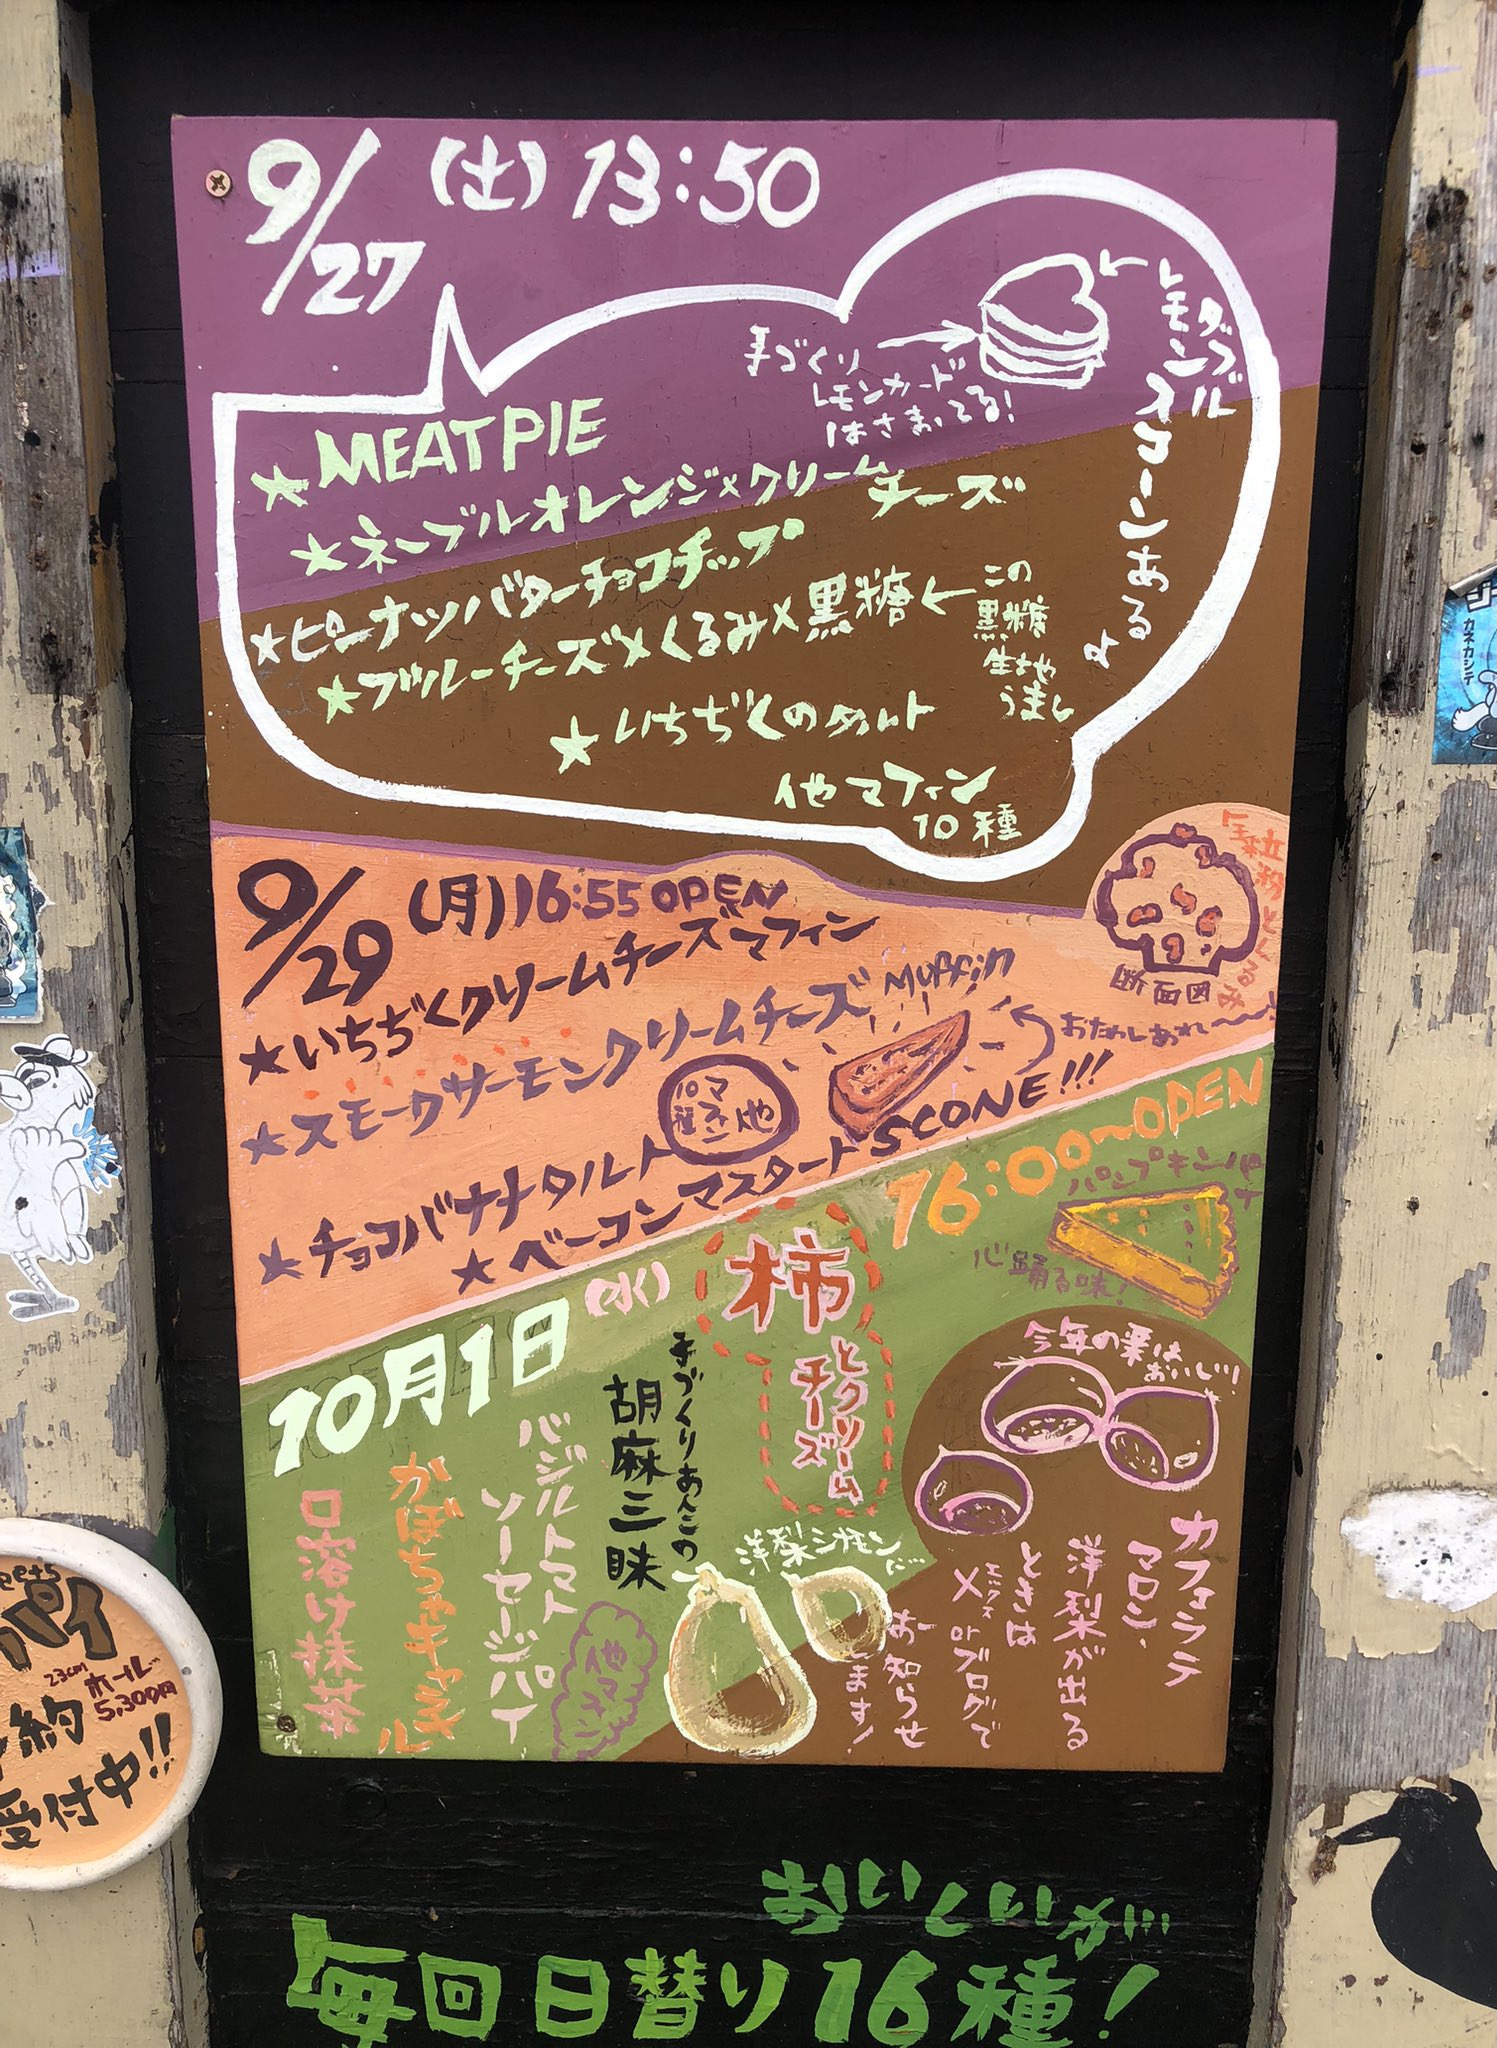 9/27 (土) 13:50
レモンダブルスコーンあるよ
手づくり
レモンカード
はさまってる!
★MEAT PIE
★ネーブルオレンジ×クリームチーズ
★ピーナッツバターチョコチップ
★ブルーチーズ×くるみ×黒糖
この
黒糖
生地や
うまし
★いちぢくのタルト
他マフィン
10種
9/29 (月) 16:55 OPEN
★いちぢくクリームチーズマフィン
★スモークサーモンクリームチーズ Muffin
★チョコバナナタルト
★ベーコンマスタードSCONE!!!
他マフィン10種
全粒粉とくるみ
断面図
10月1日(水)
16:00〜OPEN
パンプキンパイ
心踊る味!
柿
とクリーム
チーズ
手づくりあんこの
胡麻三昧
バジルトマト
ソーセージパイ
かぼちゃキャラメル
口溶け抹茶
他マフィン
今年の栗は
おいしい!
カフェラテ
マロン、
洋梨シナモン
洋梨が出る
ときは
X エックス orブログで
お知らせ
します!
おいしいが…
毎回日替り16種!
パイ
23cm
ホール
5,300円
約
受付中!!
カネカシテ